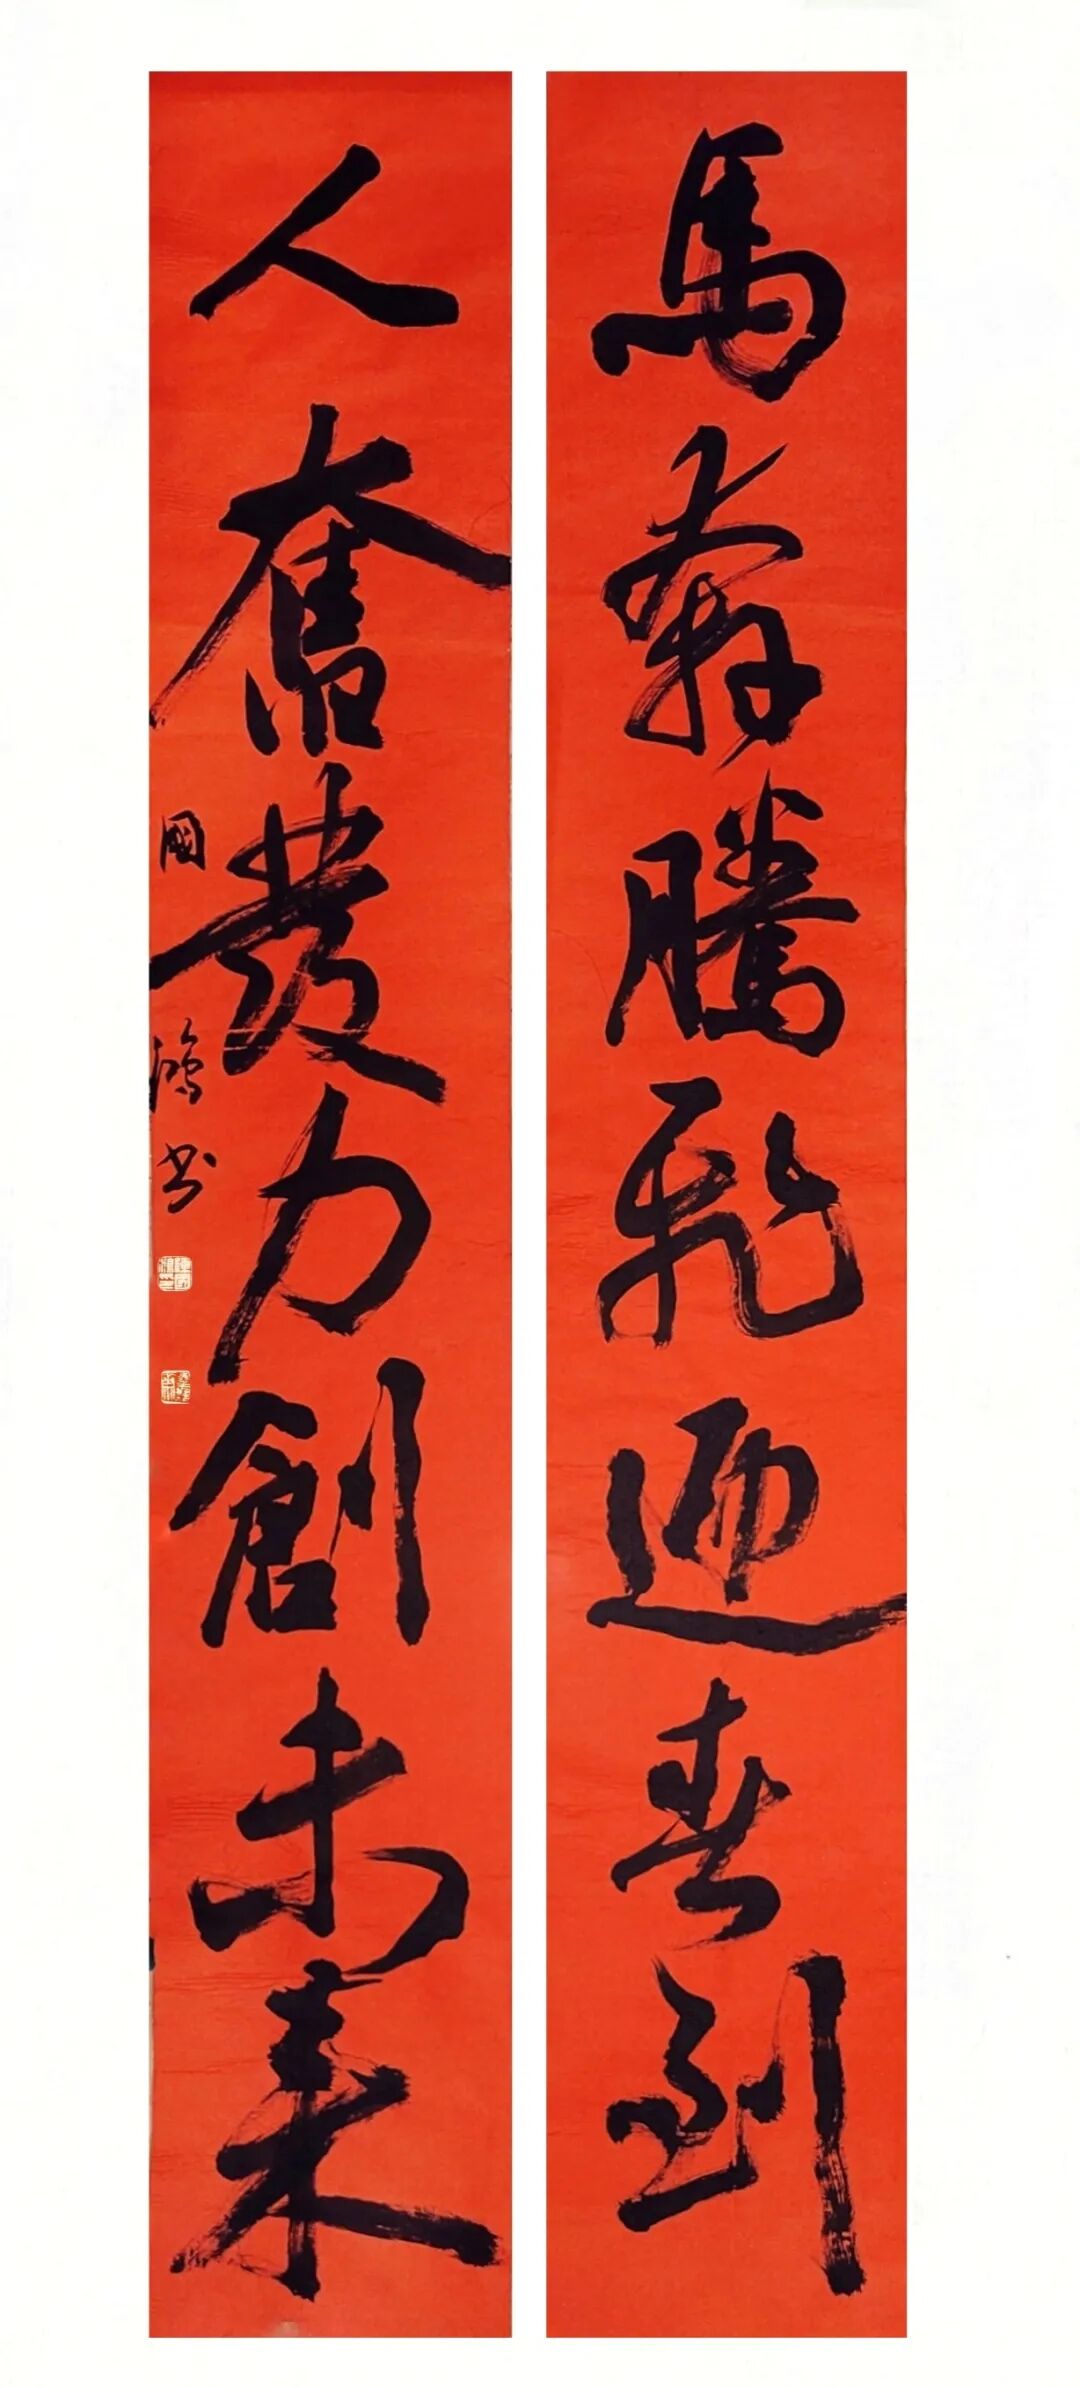 馬奔騰飛迎春到
人奮發力創未來
國鴻书